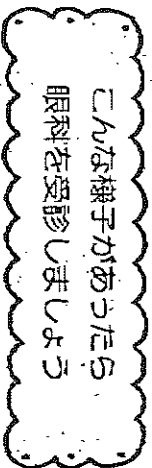 こんな様子があったら
眼科を受診しましょう